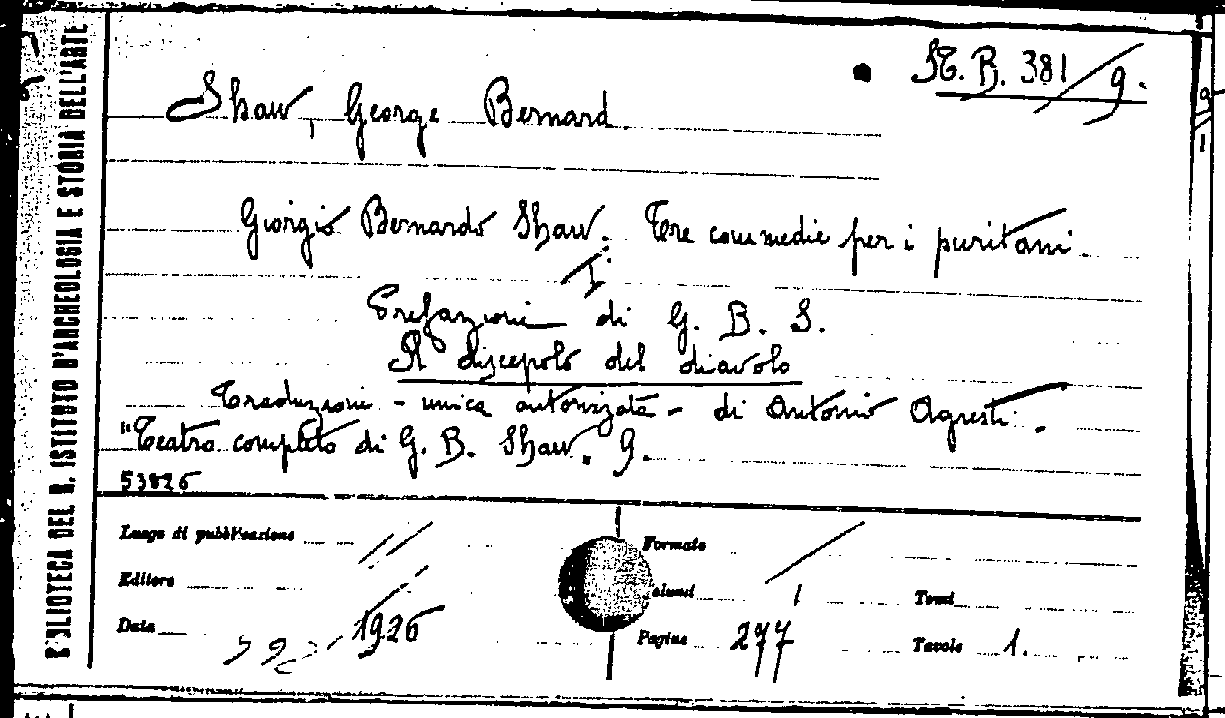 BIBLIOTECA DEL R. ISTITUTO D'ARCHEOLOGIA E STORIA DELL'ARTE
B. 381/9.
Shaw, George Bernard.
Giorgio Bernardo Shaw. Tre commedie per i puritani.
I.
Prefazione di G. B. S.
Il discepolo del diavolo
Traduzione - unica autorizzata - di Antonio Agresti.
"Teatro completo di G. B. Shaw. 9.
53826
Luogo di pubblicazione //
Editore
Data 1926
Formato /
Volumi 1
Pagine 277
Tomi
Tavole 1.